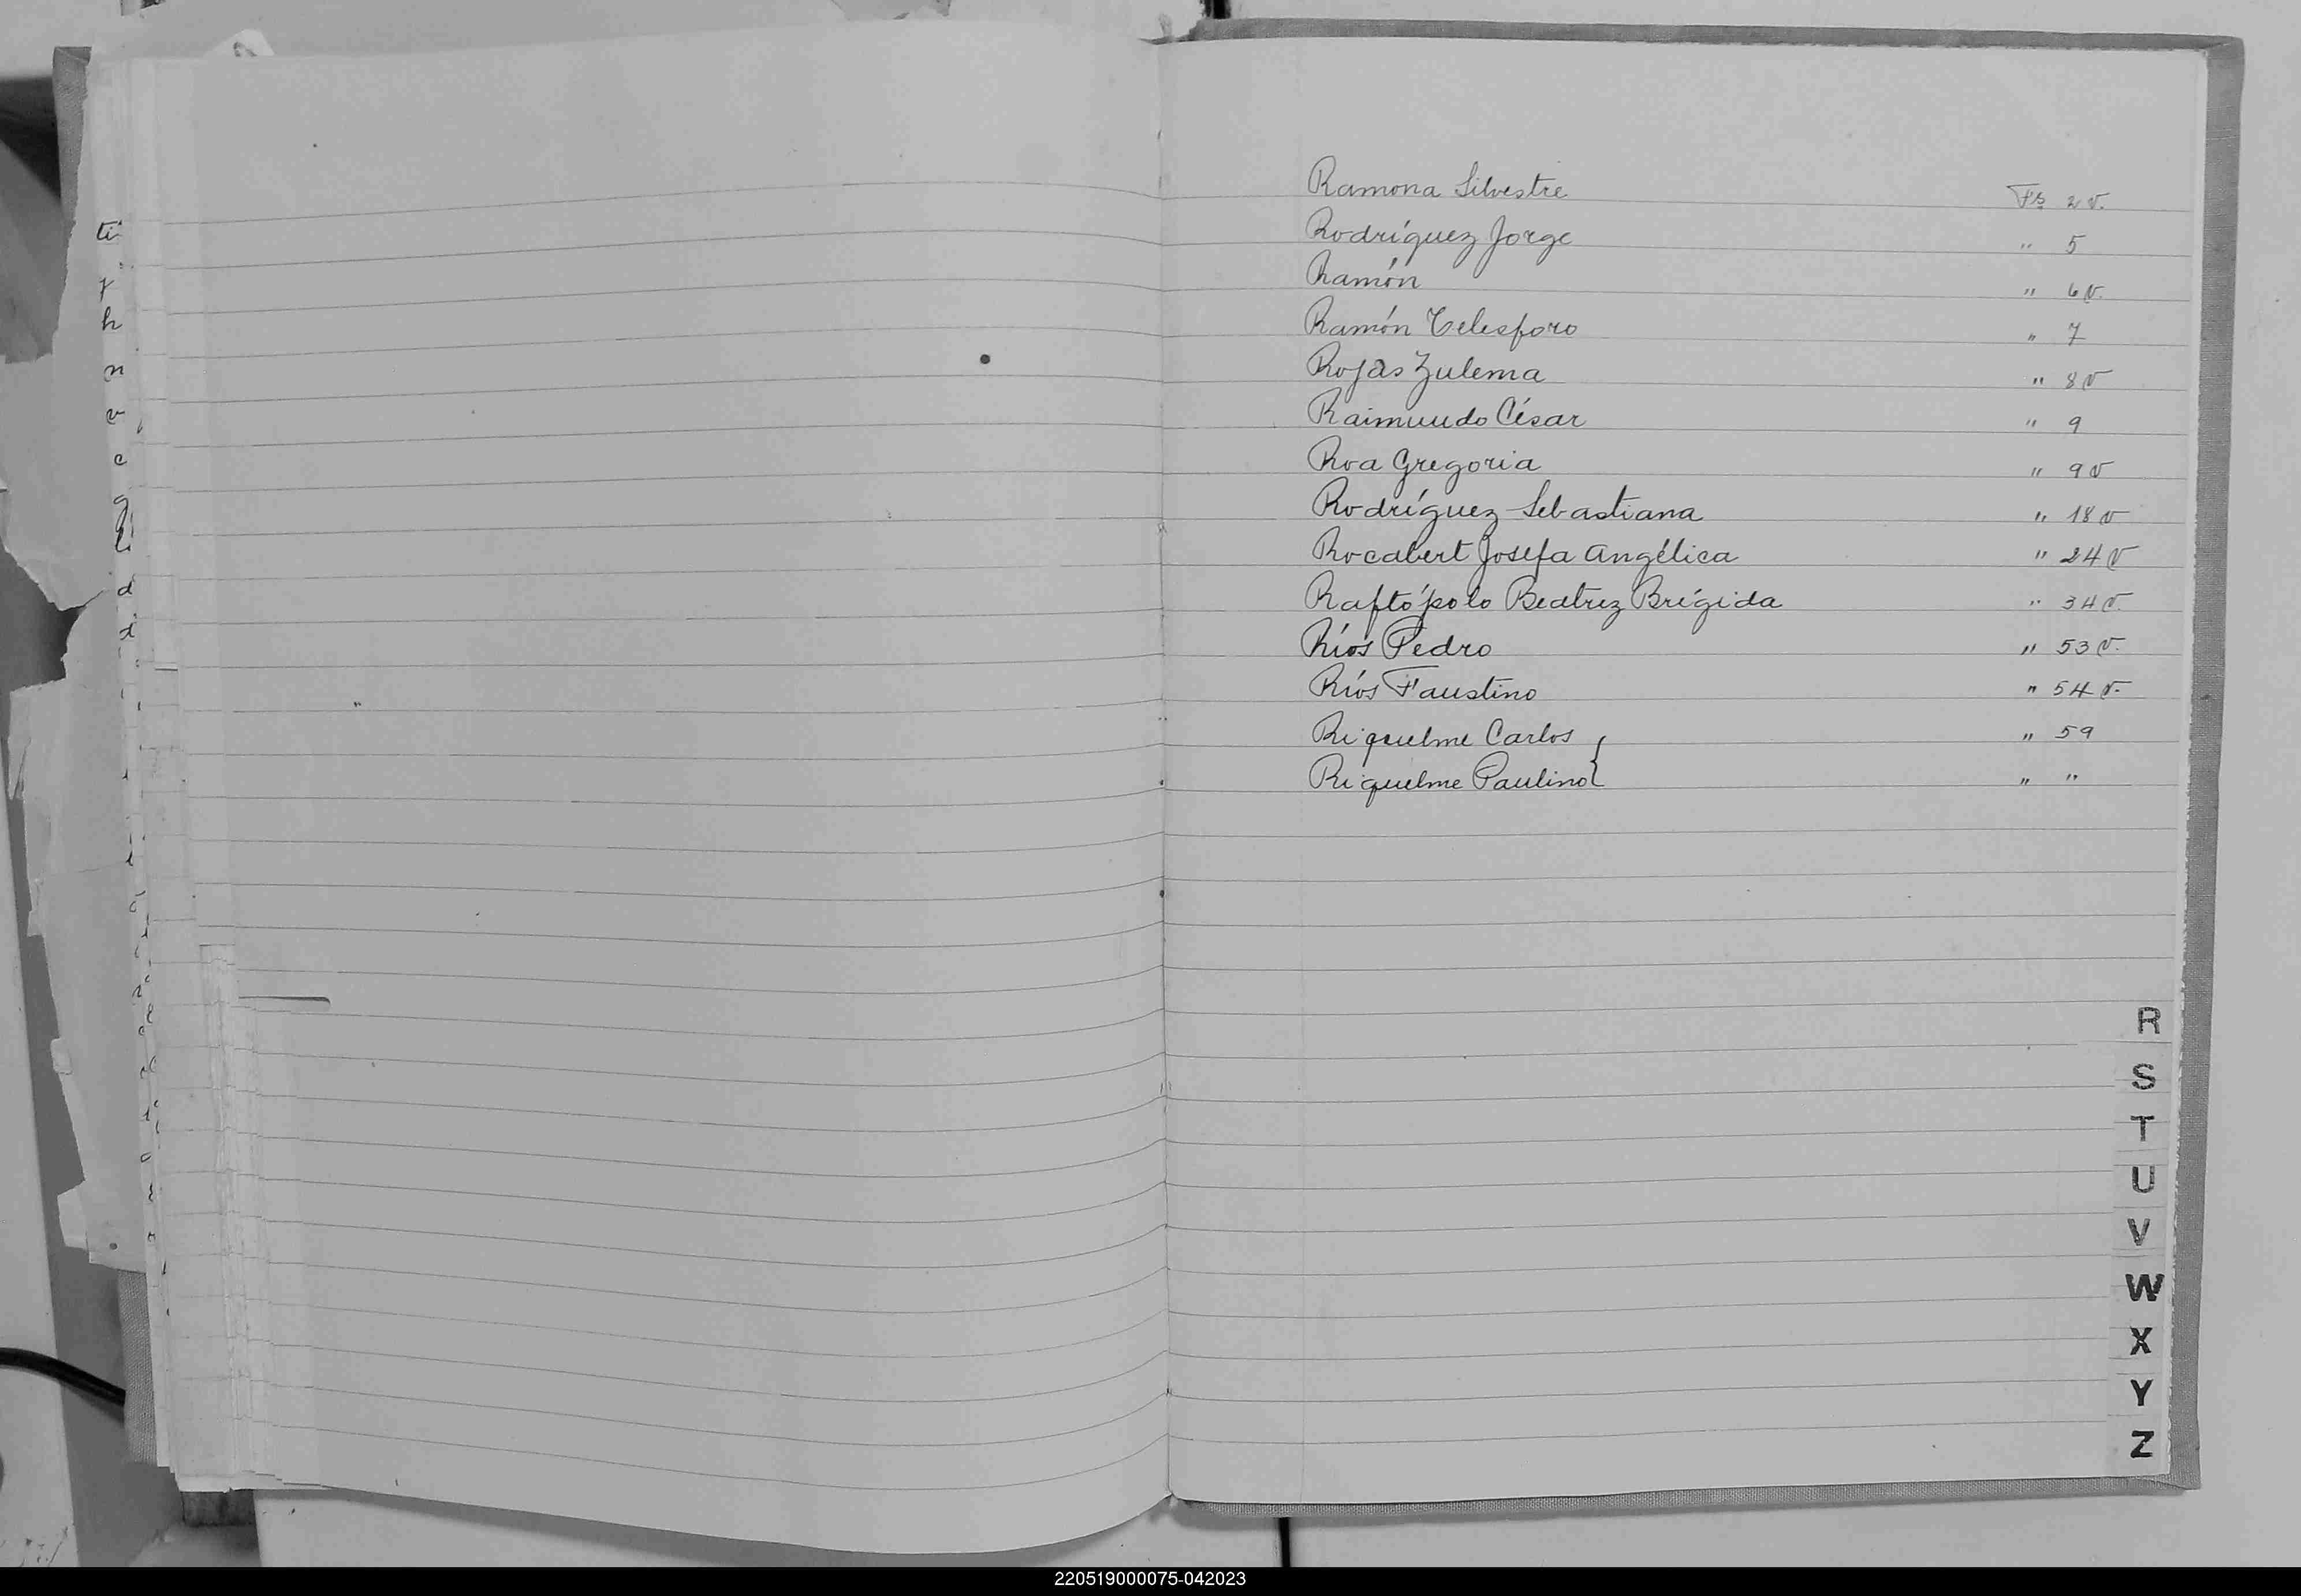 Ramona Silvestre Fs 2 v.
Rodríguez Jorge " 5
Ramón " 6 v.
Ramón Telesforo " 7
Rojas Zulema " 8 v
Raimundo César " 9
Roa Gregoria " 9 v
Rodríguez Sebastiana " 18 v
Rocabert Josefa Angélica " 24 v
Raftópolo Beatriz Brígida " 34 v.
Ríos Pedro " 53 v.
Ríos Faustino " 54 v.
Riquelme Carlos " 59
Riquelme Paulino " "
R
S
T
U
V
W
X
Y
Z
220519000075-042023